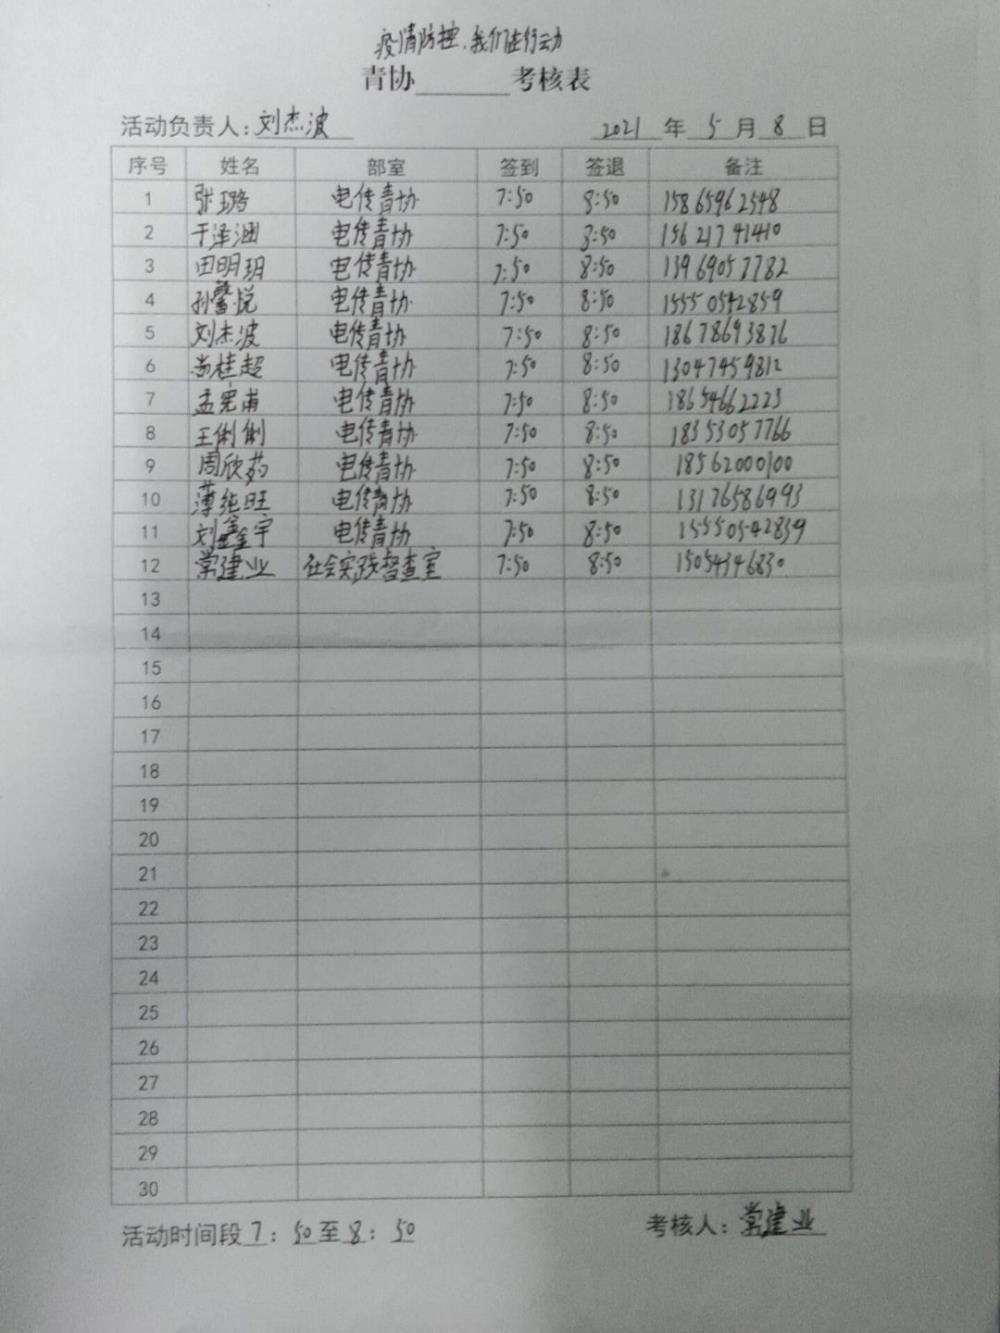 疫情防控，我们在行动
青协______考核表
活动负责人：刘杰波 2021 年 5 月 8 日
序号 姓名 部室 签到 签退 备注
1 张璐 电传青协 7:50 8:50 15865962548
2 于泽涵 电传青协 7:50 8:50 15621741410
3 田明玥 电传青协 7:50 8:50 13969057782
4 孙馨悦 电传青协 7:50 8:50 15550542859
5 刘杰波 电传青协 7:50 8:50 18678693876
6 尚桂超 电传青协 7:50 8:50 13047459812
7 孟宪甫 电传青协 7:50 8:50 18654662223
8 王俐俐 电传青协 7:50 8:50 18353057766
9 周欣 电传青协 7:50 8:50 18562000100
10 薄纯旺 电传青协 7:50 8:50 13176586993
11 刘鑫宇 电传青协 7:50 8:50 15550542859
12 常建业 社会实践督查室 7:50 8:50 15054346830
13
14
15
16
17
18
19
20
21
22
23
24
25
26
27
28
29
30
活动时间段 7：50 至 8：50 考核人：常建业